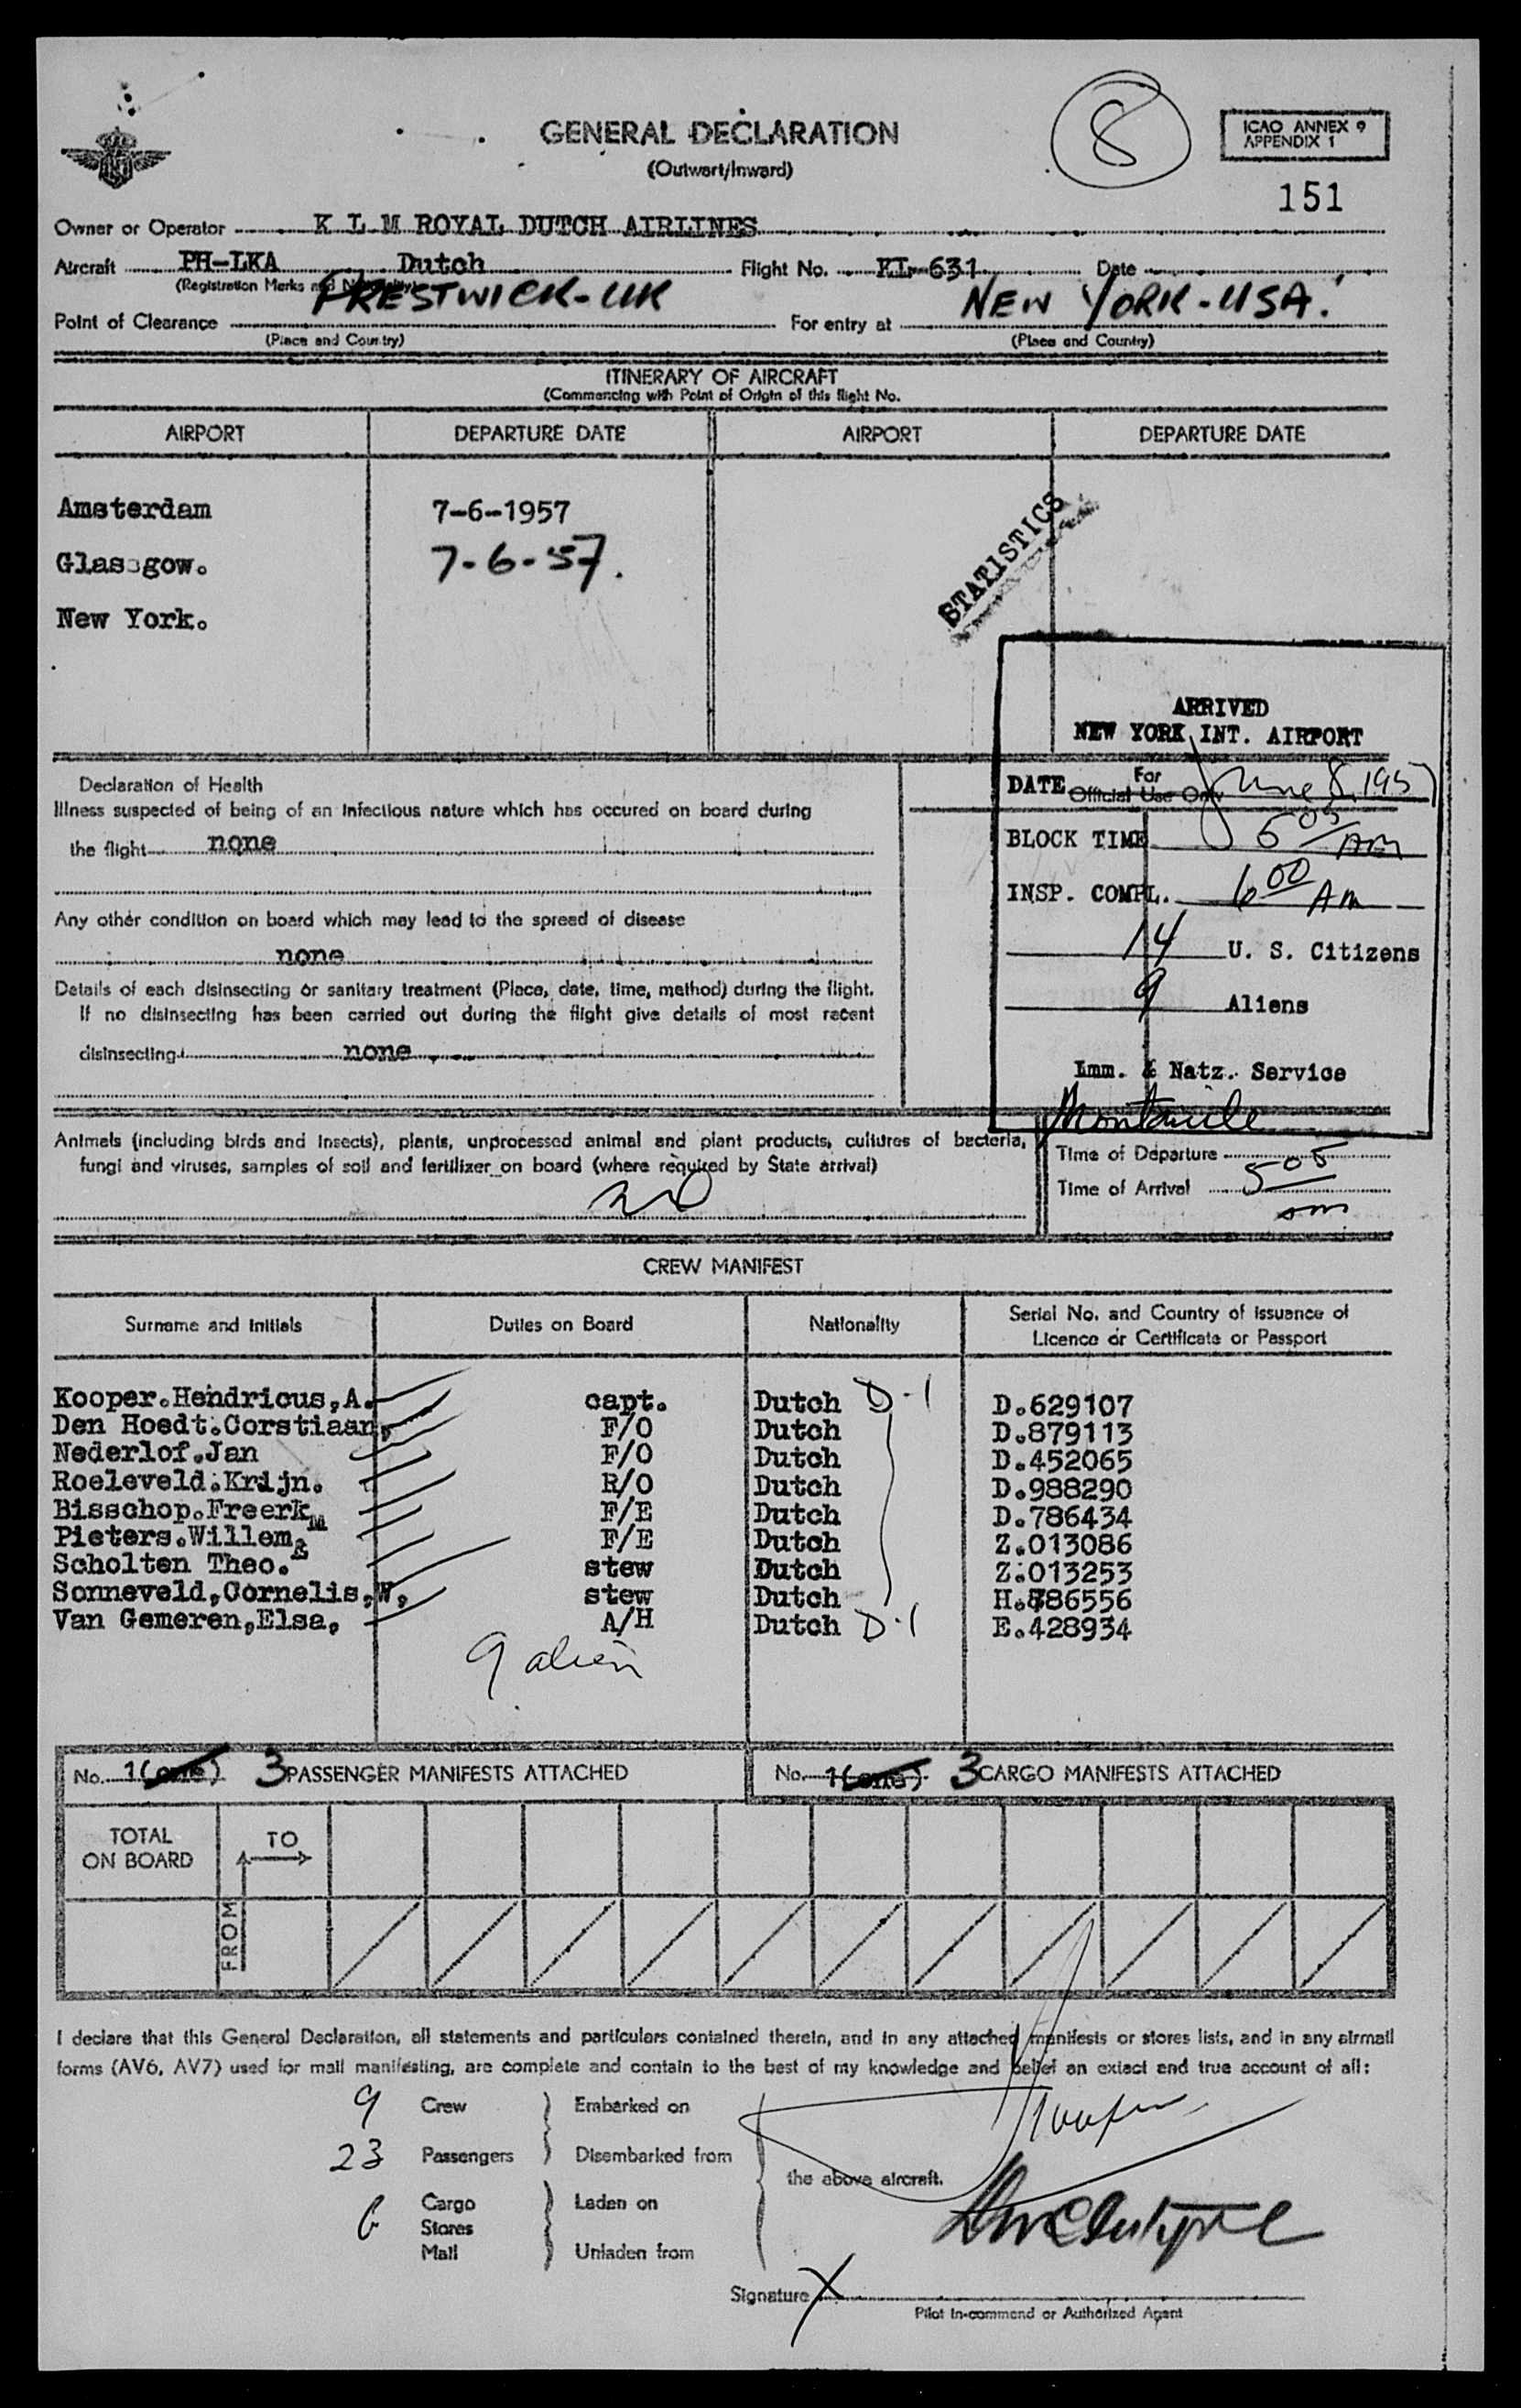 GENERAL DECLARATION
(Outwart/Inward)
8
ICAO ANNEX 9
APPENDIX 1
151
Owner or Operator K L M ROYAL DUTCH AIRLINES
Aircraft PH-LKA Dutch Flight No. KL-631 Date
(Registration Marks and Nationality)
Point of Clearance PRESTWICK-UK For entry at NEW YORK-USA.
(Place and Country) (Place and Country)
ITINERARY OF AIRCRAFT
(Commencing with Point of Origin of this flight No.
AIRPORT DEPARTURE DATE AIRPORT DEPARTURE DATE
Amsterdam 7-6-1957
Glasgow. 7-6-57.
New York.
STATISTICS
ARRIVED
NEW YORK INT. AIRPORT
For
Official Use Only
DATE June 8, 1957
BLOCK TIME 5 05 AM
INSP. COMPL. 6 00 AM
14 U. S. Citizens
9 Aliens
Imm. & Natz. Service
Declaration of Health
Illness suspected of being of an infectious nature which has occured on board during
the flight none
Any other condition on board which may lead to the spread of disease
none
Details of each disinsecting or sanitary treatment (Place, date, time, method) during the flight.
If no disinsecting has been carried out during the flight give details of most recent
disinsecting none
Animals (including birds and insects), plants, unprocessed animal and plant products, cultures of bacteria,
fungi and viruses, samples of soil and fertilizer on board (where required by State arrival)
Time of Departure
Time of Arrival 5 05
am
CREW MANIFEST
Surname and Initials Duties on Board Nationality Serial No. and Country of Issuance of
Licence or Certificate or Passport
Kooper.Hendricus,A. capt. Dutch D-1 D.629107
Den Hoedt.Corstiaan, F/O Dutch D.879113
Nederlof.Jan F/O Dutch D.452065
Roeleveld.Krijn. R/O Dutch D.988290
Bisschop.Freerk F/E Dutch D.786434
Pieters.Willem M F/E Dutch Z.013086
Scholten Theo. stew Dutch Z.013253
Sonneveld,Cornelis,W, stew Dutch H.886556
Van Gemeren,Elsa, A/H Dutch D-1 E.428934
9 alien
No. 1(one) 3 PASSENGER MANIFESTS ATTACHED No. 1(one) 3 CARGO MANIFESTS ATTACHED
TOTAL
ON BOARD
TO
FROM
I declare that this General Declaration, all statements and particulars contained therein, and in any attached manifests or stores lists, and in any airmail
forms (AV6, AV7) used for mail manifesting, are complete and contain to the best of my knowledge and belief an extact and true account of all:
9 Crew Embarked on
23 Passengers Disembarked from
the above aircraft.
Cargo Laden on
Stores
Mail Unladen from
Signature X
Pilot in-commend or Authorized Agent